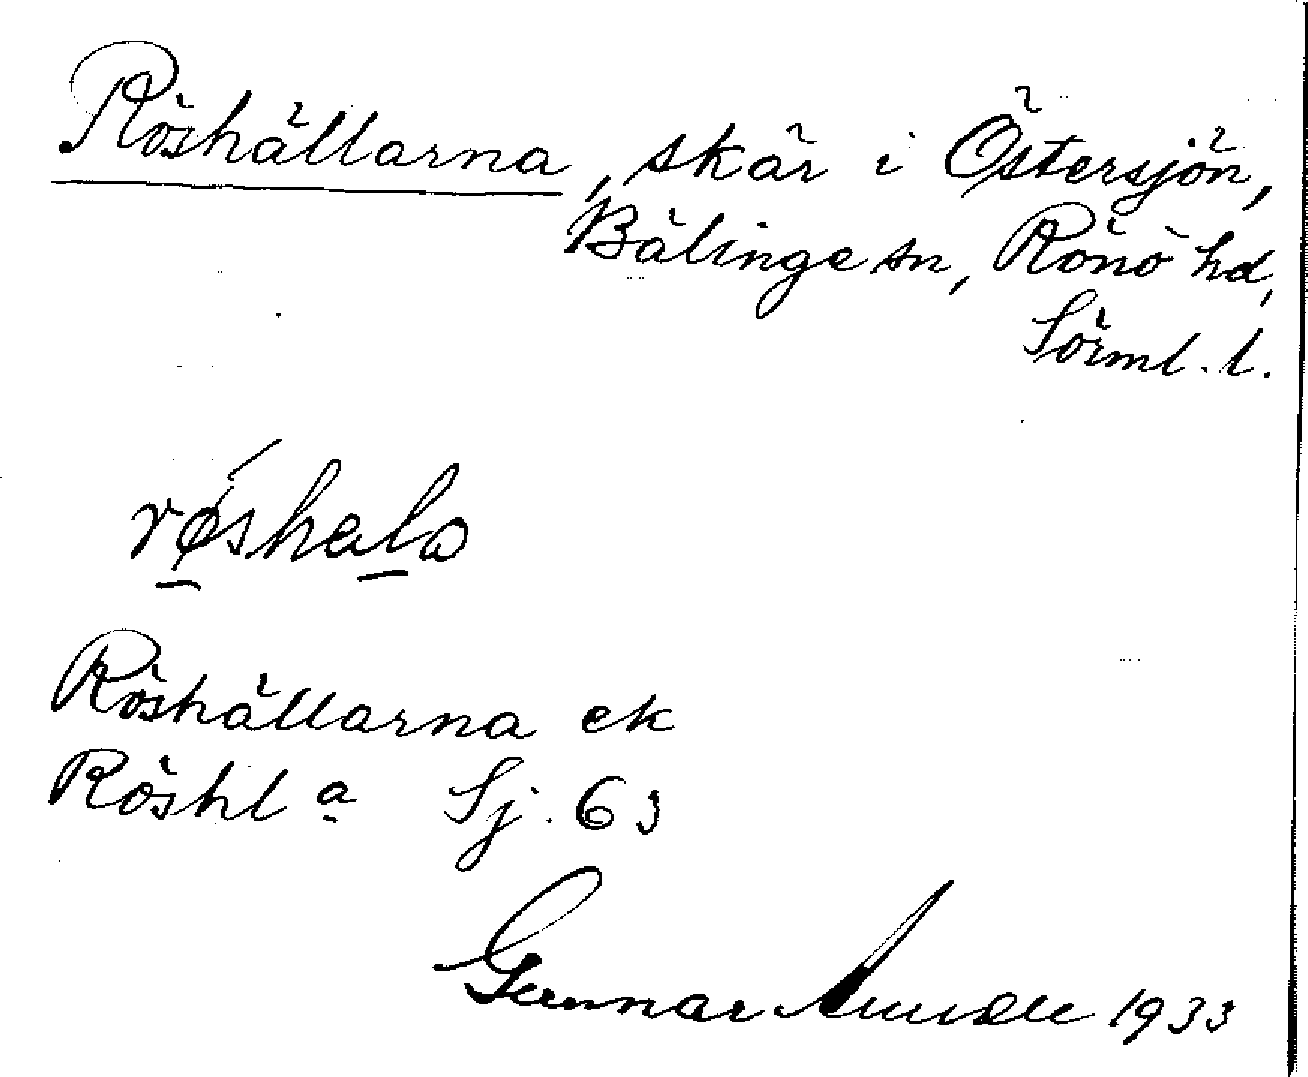 Röshällarna, skär i Östersjön,
Bälinge sn, Rönö hd,
Sörml. l.
Röshällarna ek
Röshl a Sj. 63
Gunnar 1933